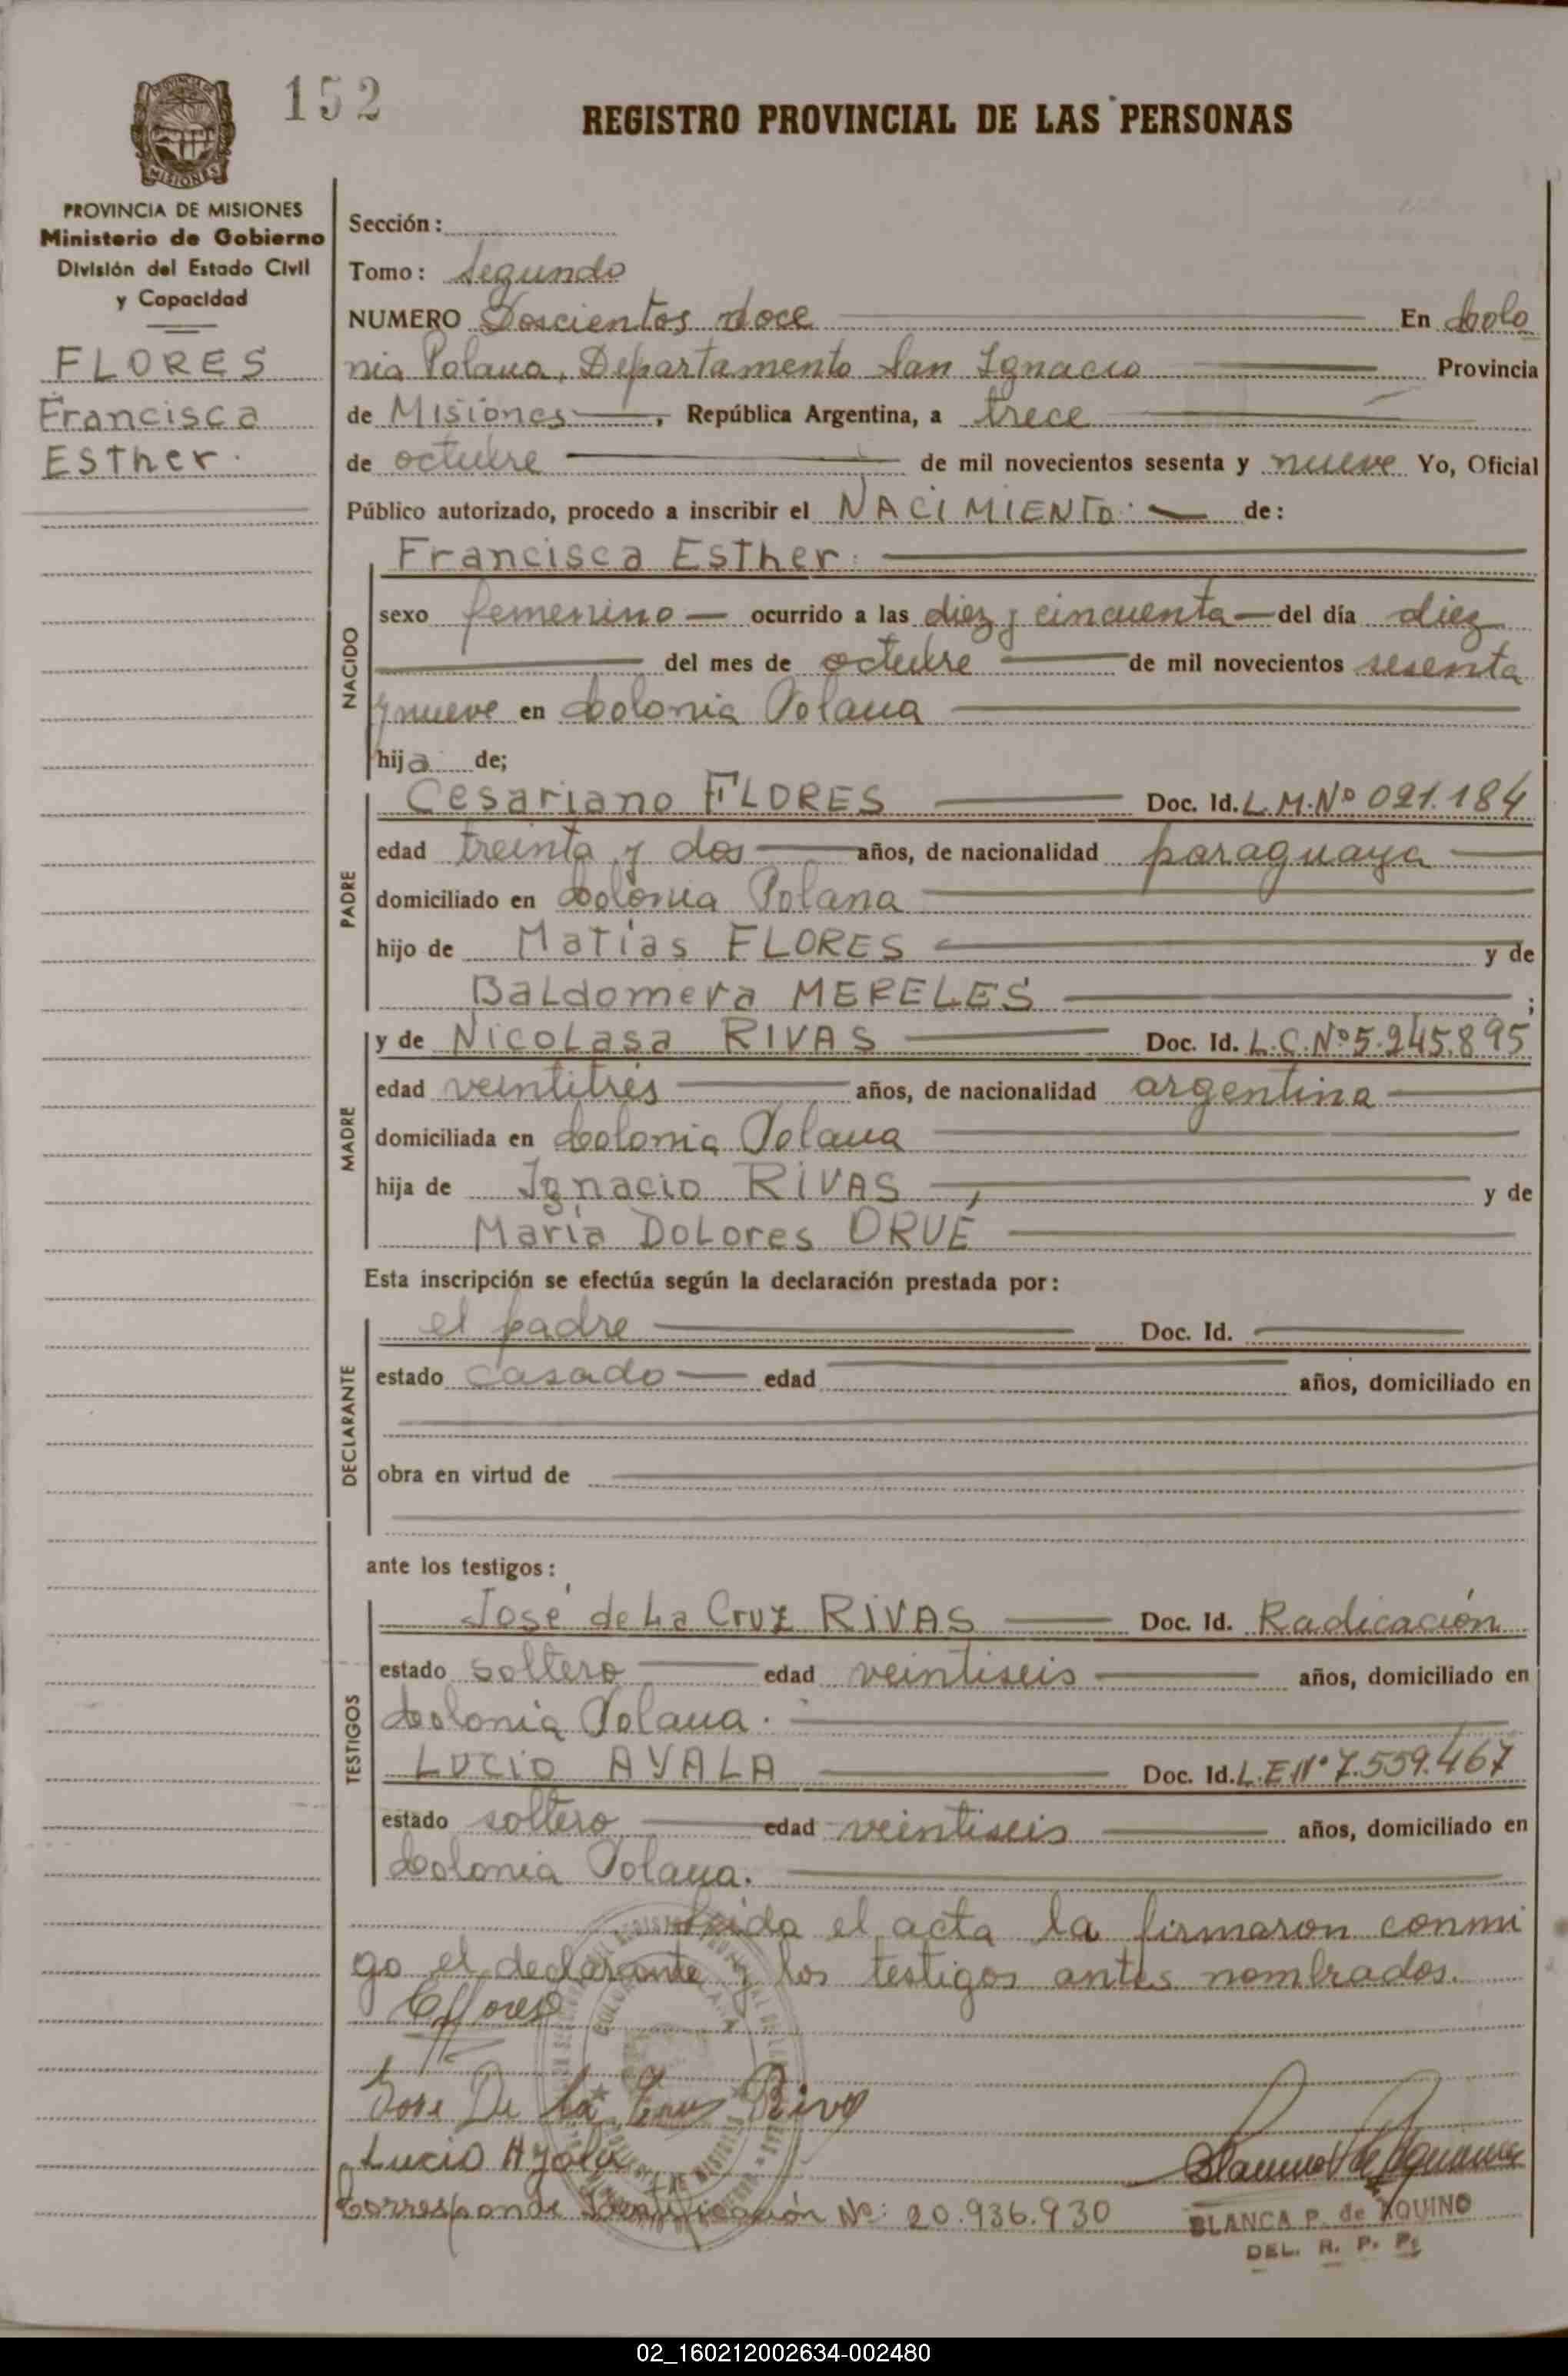 152
REGISTRO PROVINCIAL DE LAS PERSONAS
MISIONES
PROVINCIA DE MISIONES
Ministerio de Gobierno
División del Estado Civil
y Capacidad
FLORES
Francisca
Esther.
Sección:
Tomo: Segundo
NUMERO Doscientos doce En Colo
nia Polana, Departamento San Ignacio Provincia
de Misiones, República Argentina, a trece
de octubre de mil novecientos sesenta y nueve Yo, Oficial
Público autorizado, procedo a inscribir el NACIMIENTO. de:
NACIDO
Francisca Esther.
sexo femenino ocurrido a las diez y cincuenta del día diez
del mes de octubre de mil novecientos sesenta
y nueve en Colonia Polana
hija de;
PADRE
Cesariano FLORES Doc. Id. L.M.Nº 021.184
edad treinta y dos años, de nacionalidad paraguaya
domiciliado en Colonia Polana
hijo de Matías FLORES y de
Baldomera MERELES ;
MADRE
y de Nicolasa RIVAS Doc. Id. L.C.Nº 5.245.895
edad veintitrés años, de nacionalidad argentina
domiciliada en Colonia Polana
hija de Ignacio RIVAS, y de
María Dolores ORUÉ
Esta inscripción se efectúa según la declaración prestada por:
DECLARANTE
el padre Doc. Id.
estado casado edad años, domiciliado en
obra en virtud de
ante los testigos:
TESTIGOS
José de La Cruz RIVAS Doc. Id. Radicación
estado soltero edad veintiseis años, domiciliado en
Colonia Polana.
Lucio AYALA Doc. Id. L.E Nº 7.559.467
estado soltero edad veintiseis años, domiciliado en
Colonia Polana.
Leida el acta la firmaron conmi
go el declarante y los testigos antes nombrados.
CFlores
Jose De La Cruz Riva
Lucio Ayala
Corresponde Identificación Nº: 20.936.930
BLANCA P. de AQUINO
DEL. R. P. P.
02_160212002634-002480